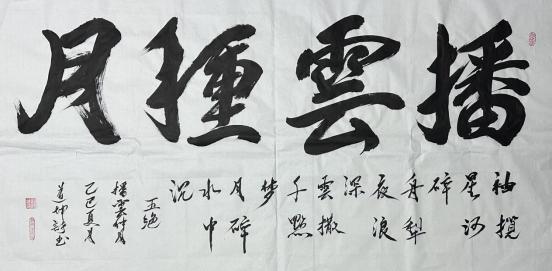 播雲種月
袖攬
星河
碎
舟犁
夜浪
深
雲撒
千點
梦
月碎
水中
沉
五绝
播雲种月
乙巳夏月